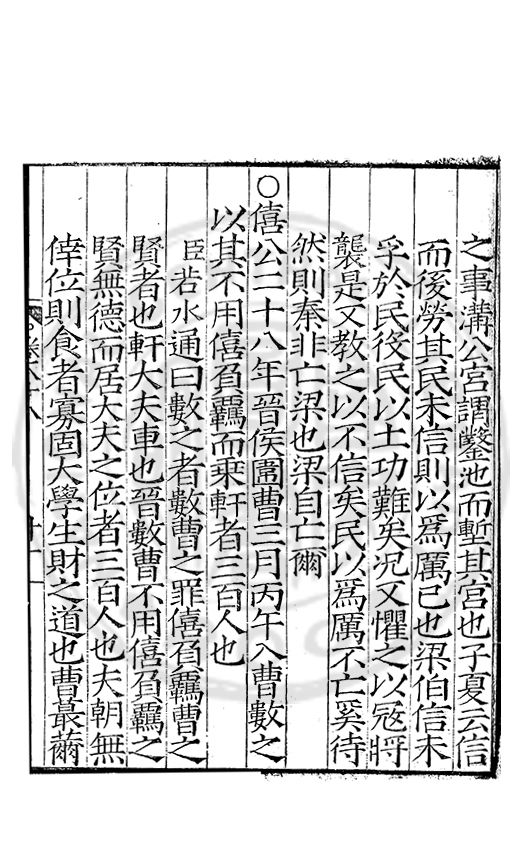 之事溝公宮謂鑿池而塹其宮也子夏云信
而後勞其民未信則以爲厲已也梁伯信未
孚於民役民以土功難矣况又懼之以冦將
襲是又教之以不信矣民以爲厲不亡奚待
然則秦非亡梁也梁自亡爾
○僖公二十八年晉侯圍曹三月丙午入曹數之
以其不用僖負羈而乗軒者三百人也
臣若水通曰數之者數曹之罪僖負羈曹之
賢者也軒大夫車也晉數曹不用僖負羈之
賢無德而居大夫之位者三百人也夫朝無
倖位則食者寡固大學生財之道也曹蕞薾